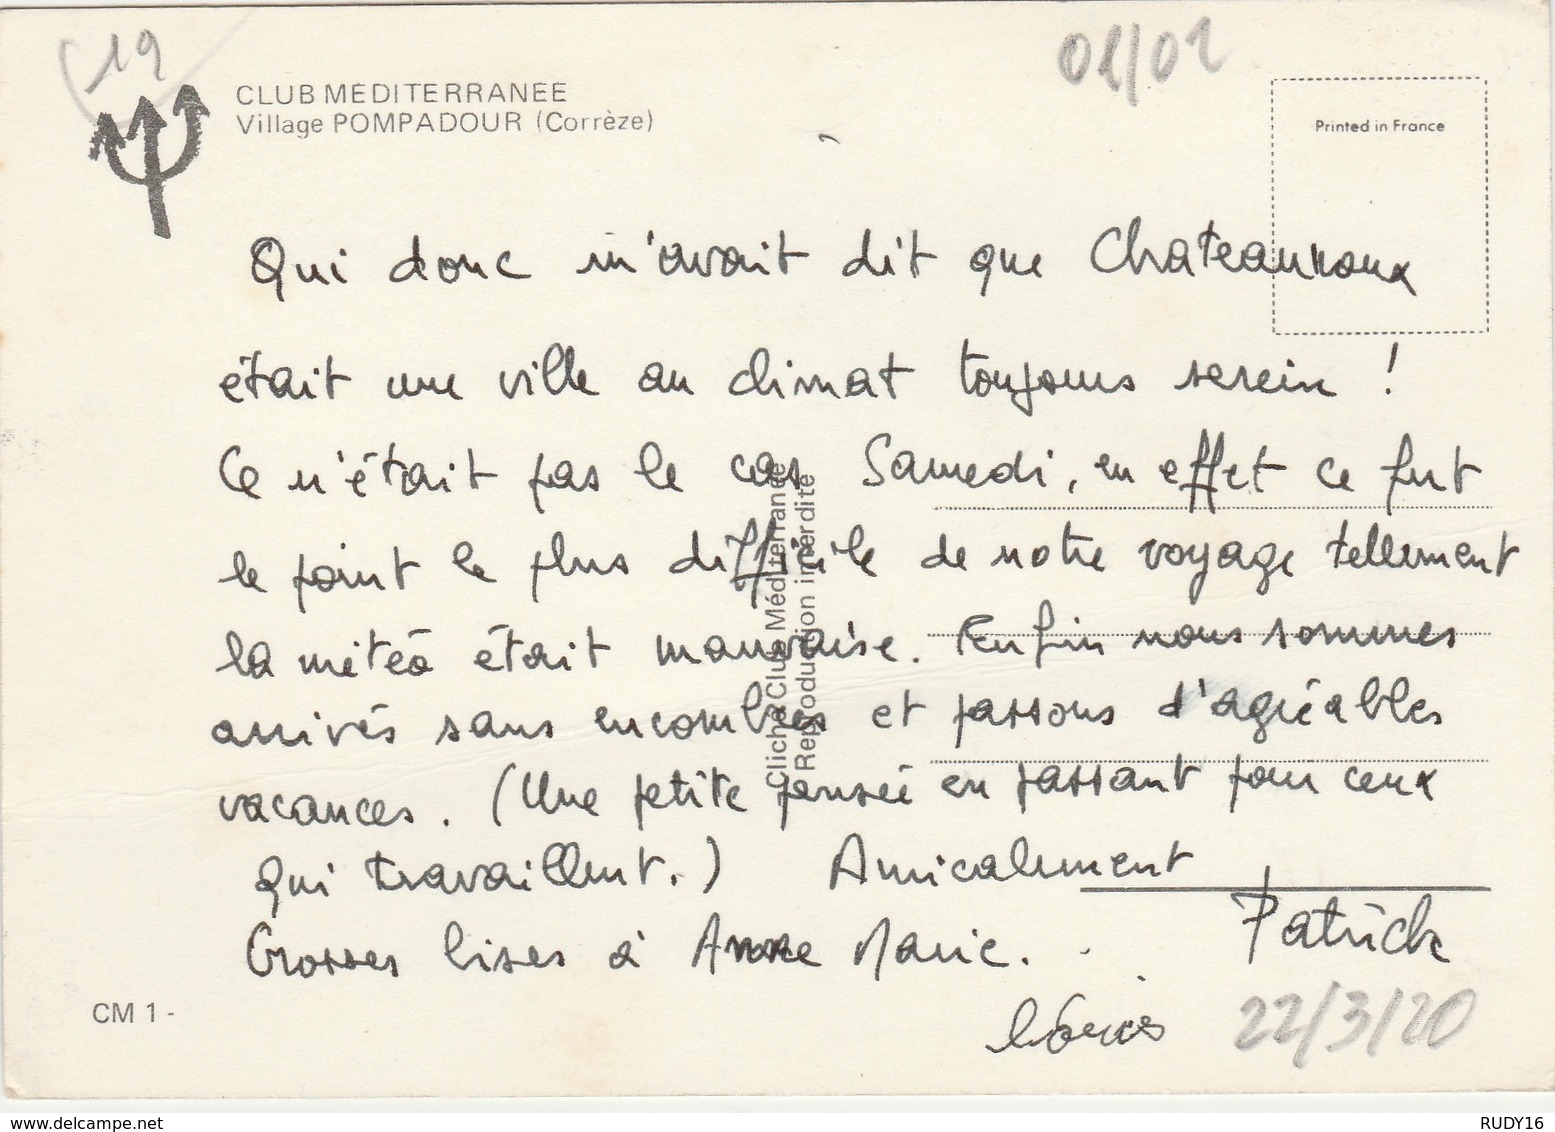 19
01/02
CLUB MEDITERRANEE
Village POMPADOUR (Corrèze)
Printed in France
Qui donc m'avait dit que Chateauroux
était une ville au climat toujours serein !
Ce n'était pas le cas Samedi, en effet ce fut
le point le plus difficile de notre voyage tellement
la météo était mauvaise. Enfin nous sommes
arrivés sans encombres et passons d'agréables
vacances. (Une petite pensée en passant pour ceux
qui travaillent.) Amicalement
Patrick
Grosses bises à Anne Marie.
22/3/20
Cliché Club Méditerranée
Reproduction interdite
CM 1 -
delcampe.net
RUDY16